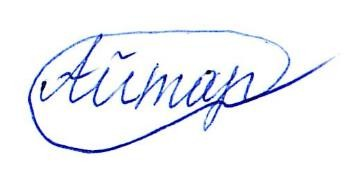 Айтар